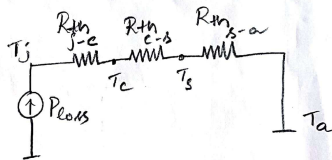 Rth j-c Rth c-s Rth s-a
Tj
Tc Ts
Ploss
Ta